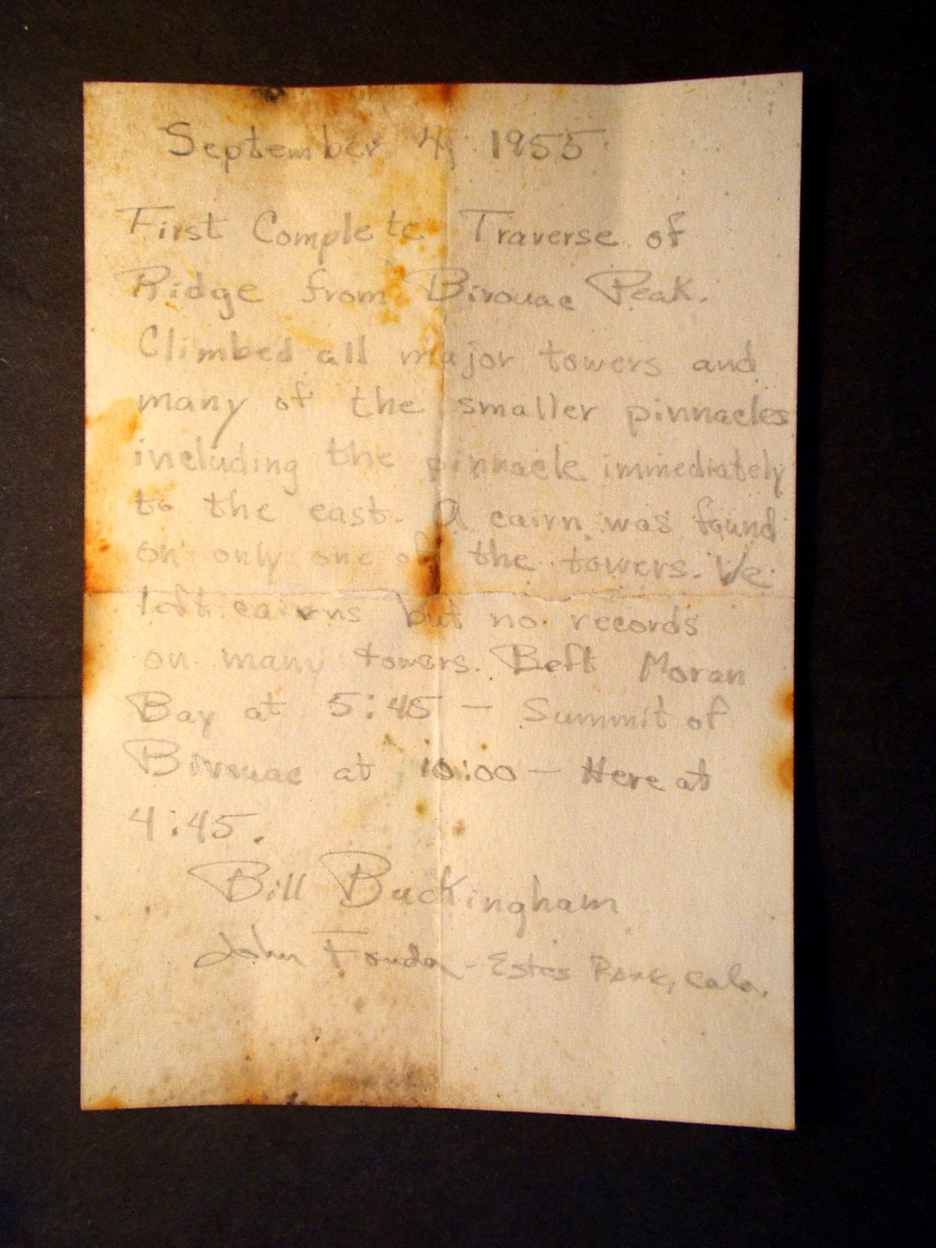 September 4, 1955
First Complete Traverse of
Ridge from Bivouac Peak.
Climbed all major towers and
many of the smaller pinnacles
including the pinnacle immediately
to the east. A cairn was found
on only one of the towers. We
left cairns but no records
on many towers. Left Moran
Bay at 5:45 — Summit of
Bivouac at 10:00 — Here at
4:45.
Bill Buckingham
John Fonda - Estes Park, Colo.